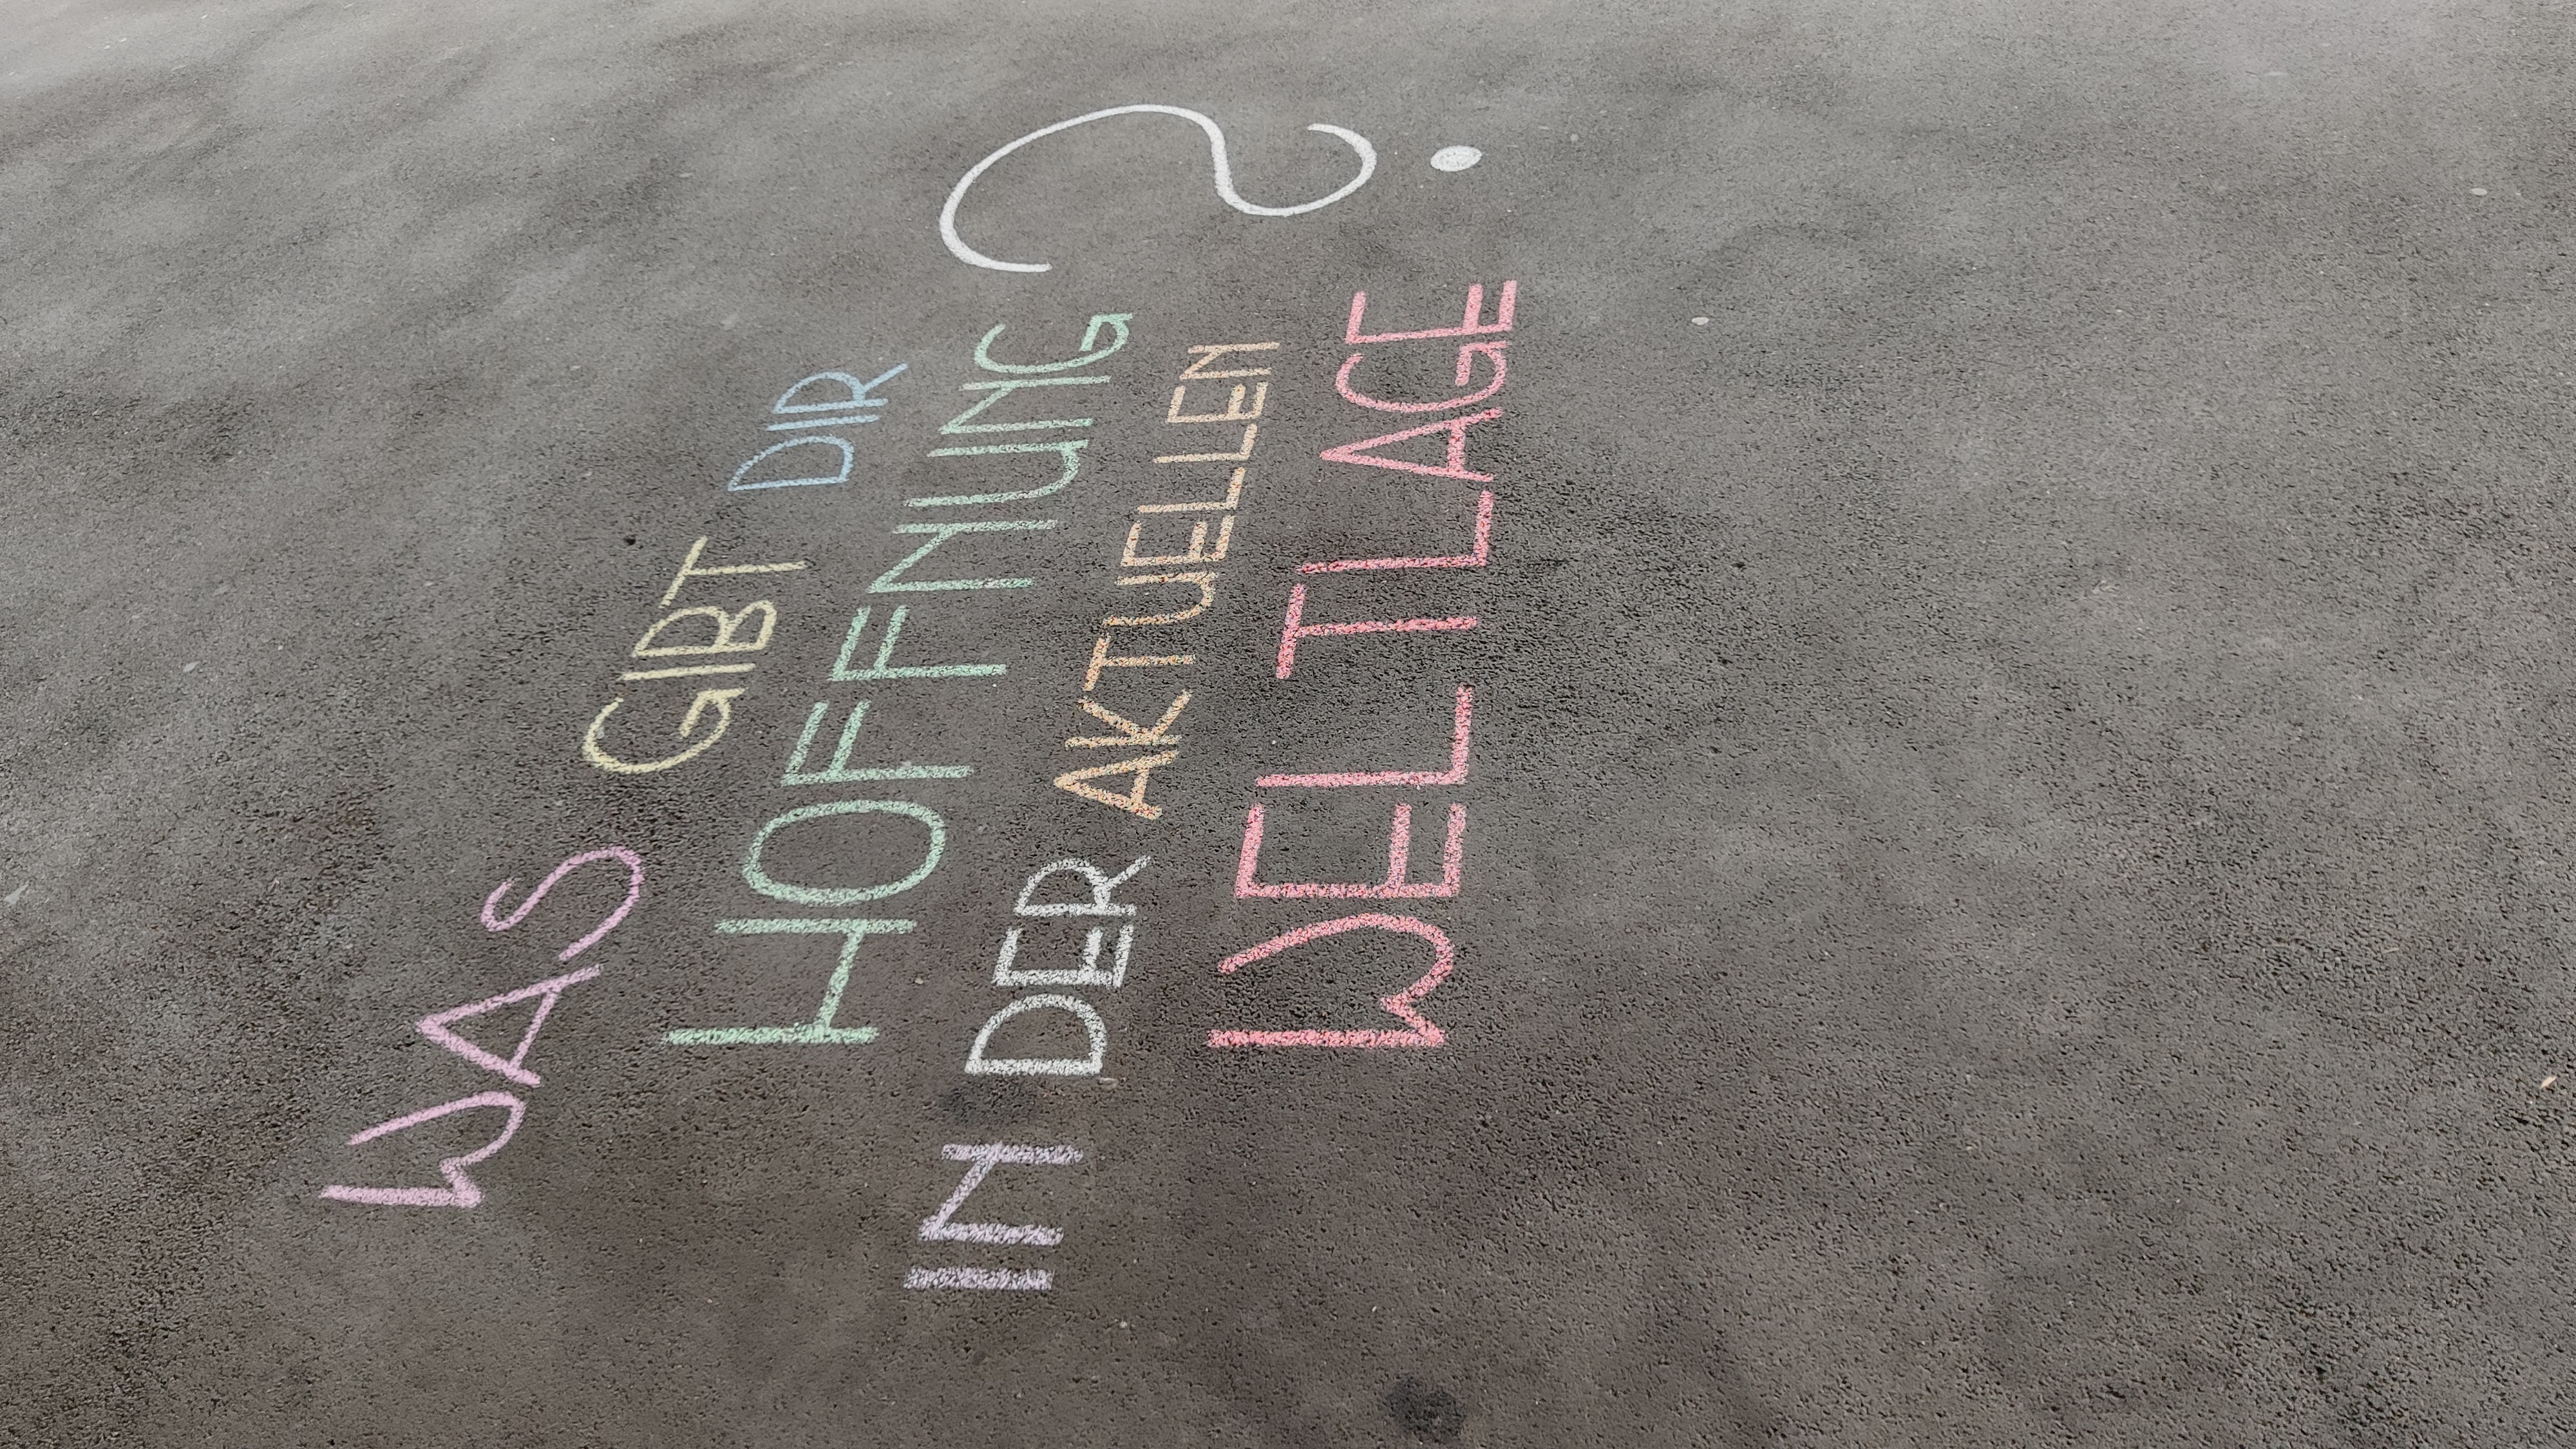 WAS GIBT DIR
HOFFNUNG
IN DER AKTUELLEN
WELTLAGE ?